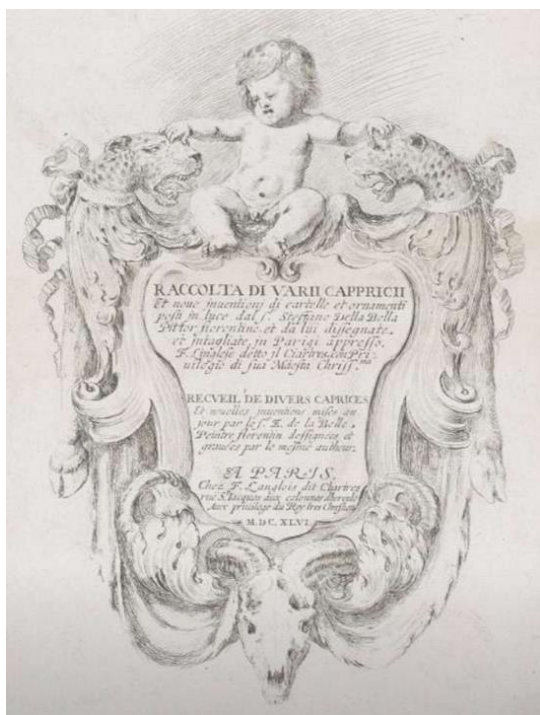 RACCOLTA DI VARII CAPPRICII
Et noue inuentionj di cartelle et ornamenti
posti in luce dal s.r Steffano Della Bella
Pittor fiorentino. et da lui dissegnate.
et intagliate in Parigi appresso.
F. Linglese detto il Ciartres, con Pri-
uilegio di sua Maesta Chriss.ma
RECVEIL DE DIVERS CAPRICES
Et nouelles inuentions mises an
jour par le s.r E. de la Belle.
Peintre florentin dessignees et
grauées par le mesme autheur.
A PARIS.
Chez F. Langlois dit Chartres
rue S. Jacques aux colonnes dhercule
Aux priuilege du Roy tres Chrestien
M.DC.XLVI.